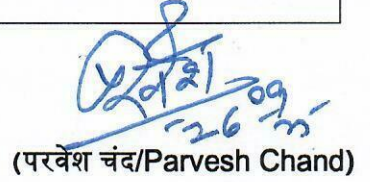 परवेश
26/09
(परवेश चंद/Parvesh Chand)